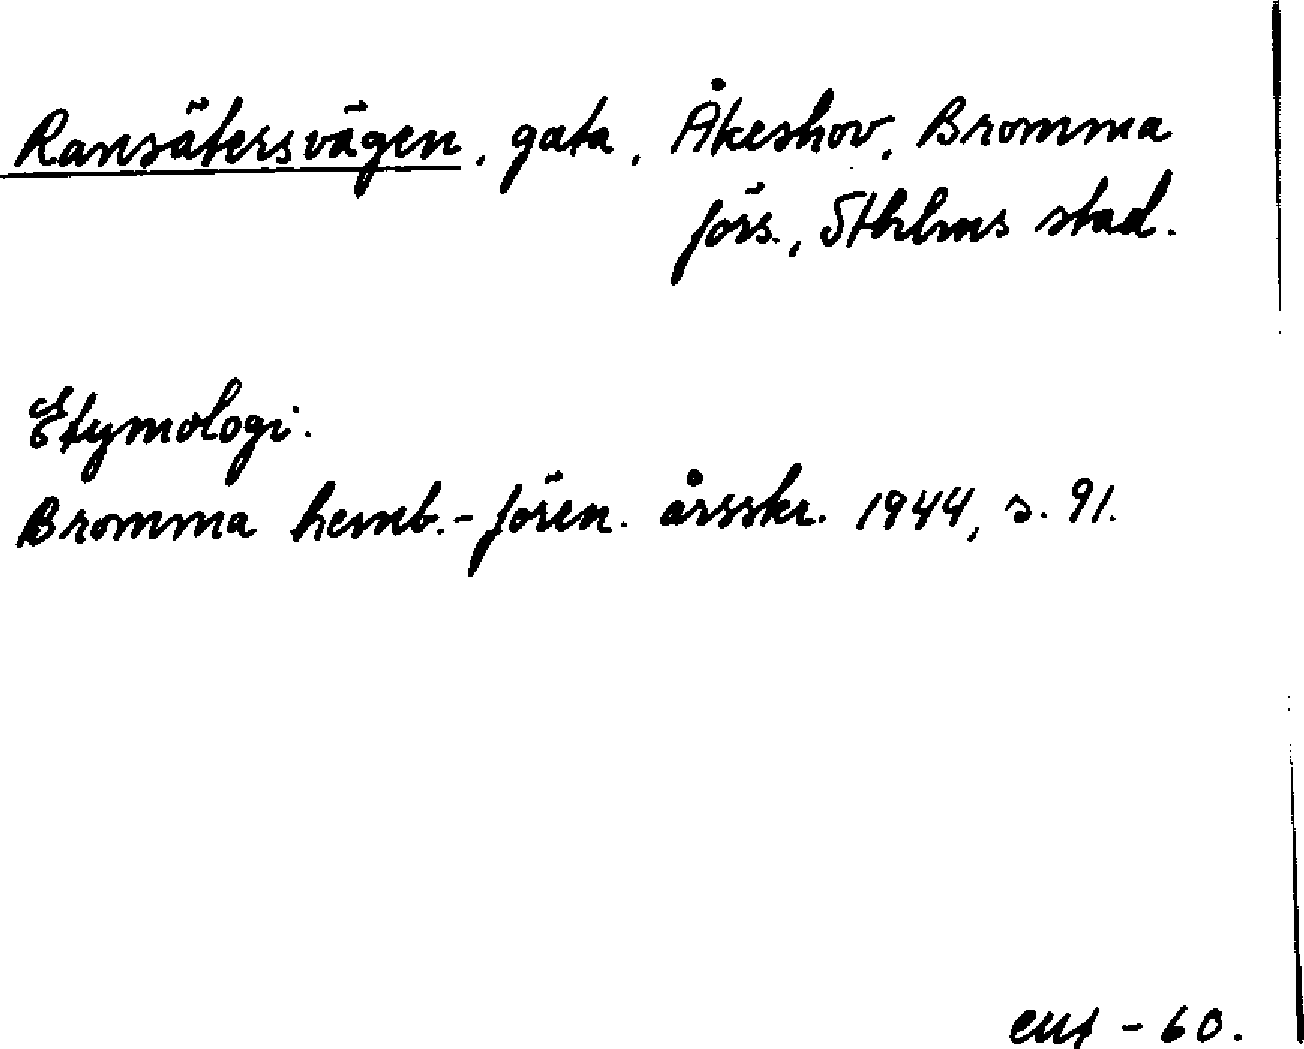 Ransätersvägen, gata, Åkeshov, Bromma
förs., Sthlms stad.
Etymologi.
Bromma hemb.-fören. årsskr. 1944, s. 91.
- 60.